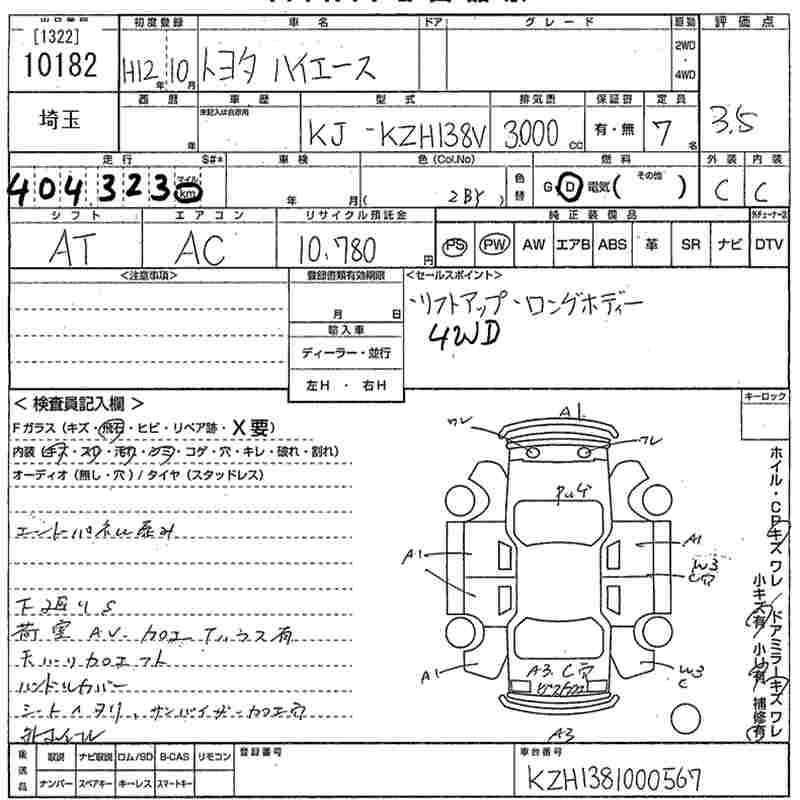 [1322]
10182
埼玉
初度登録
車名
ドア
グレード
駆動
評価点
H12年 10月
トヨタ ハイエース
2WD
・
4WD
3.5
西暦
車歴
型式
排気量
保証書
定員
年
未記入は自家用
KJ - KZH138V
3000 cc
有・無
7名
走行
S#*
車検
色(Col.No)
色替
燃料
外装
内装
404323
マイル
km
年
月
( 2BY )
G D 電気( その他 )
C
C
シフト
エアコン
リサイクル預託金
純正装備品
AT
AC
10,780円
PS
PW
AW
エアB
ABS
革
SR
ナビ
DTV
<注意事項>
登録書類有効期限
<セールスポイント>
月 日
・リフトアップ・ロングボディー
4WD
輸入車
ディーラー・並行
左H・右H
<検査員記入欄>
キーロック
Fガラス(キズ・飛石・ヒビ・リペア跡・X要)
内装(キズ・スレ・汚れ・シミ・コゲ・穴・キレ・破れ・割れ)
オーディオ(無し・穴)/タイヤ(スタッドレス)
下廻りS
ハンドルカバー
A1
ワレ
ワレ
A1
A1
W3
C穴
A1
W3
C
A3.C穴
A3
ホイル・CPキズ ワレ/ドアミラーキズ ワレ
小キズ有/小凹有/補修有
取説
ナビ取説
ロム/SD
B-CAS
リモコン
ナンバー
スペアキー
キーレス
スマートキー
登録番号
車台番号
KZH1381000567